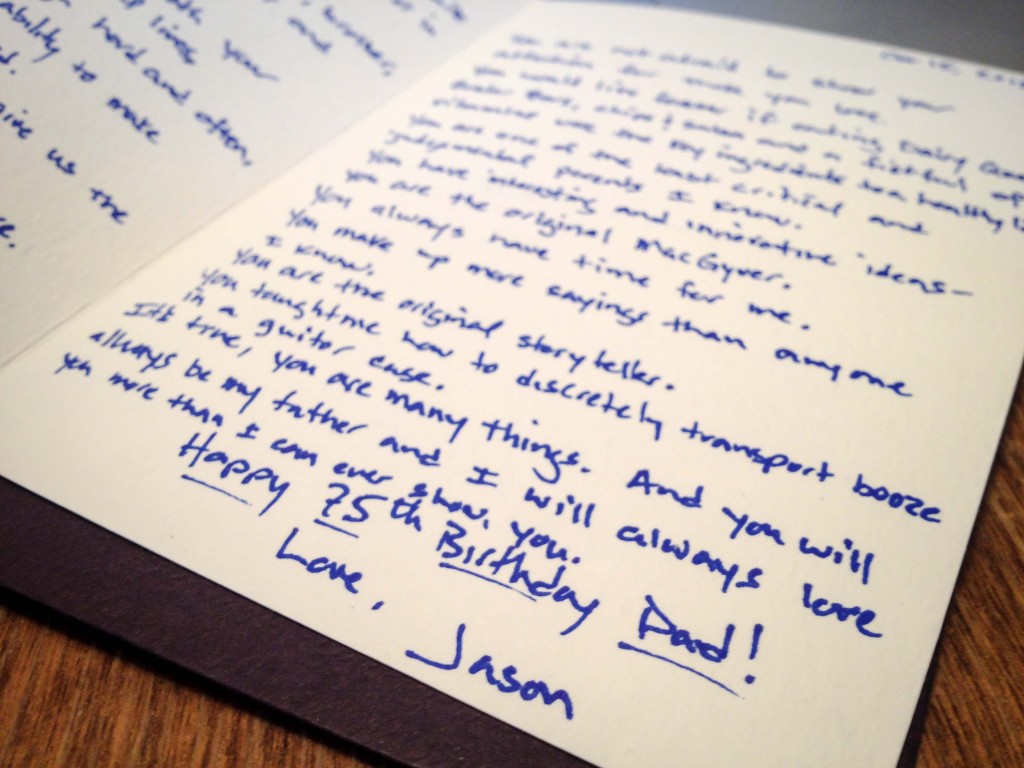 and
your
lives
hard and often,
ability to make
us the
You are not afraid to show your
for you love.
you would live longer if eating Dairy
chips & salsa and a fistful of
vitamins was the key ingredients to a healthy
You are one of the least critical and
judgemental parents I know.
You have interesting and innovative ideas-
you are the original MacGyver.
You always have time for me.
You make up more sayings than anyone
I know.
You are the original story teller.
You taught me how to discretely transport booze
in a guitar case.
It's true, you are many things. And you will
always be my father and I will always love
you more than I can ever show you.
Happy 75th Birthday Dad!
Love,
Jason